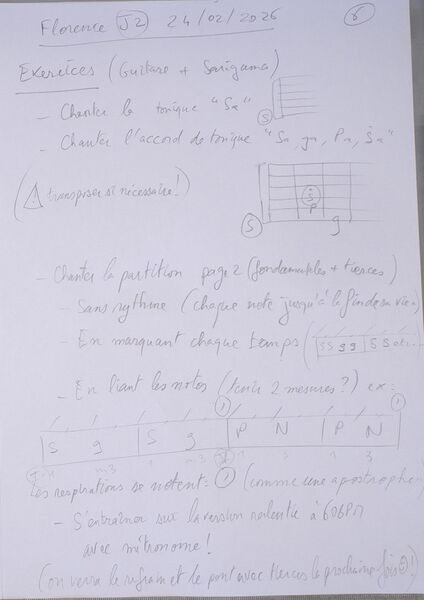 Florence J2 24/02/2026
6
Exercices (Guitare + Sarigama)
- Chanter la tonique "Sa"
S
- Chanter l'accord de tonique "Sa, ga, Pa, Ṡa"
(⚠ transposer si nécessaire!)
Ṡ
P
S g
- Chanter la partition page 2 (fondamentales + tierces)
- Sans rythme (chaque note jusqu'à la fin de sa vie)
- En marquant chaque temps (SSgg|SS etc.
- En liant les notes (tenir 2 mesures?) ex:
S g | S g | P N | P N
m3 m3 3 3
Les respirations se notent: (comme une apostrophe)
- S'entraîner sur la version ralentie à 60BPM
avec métronome!
(on verra le refrain et le pont avec tierces la prochaine fois!)